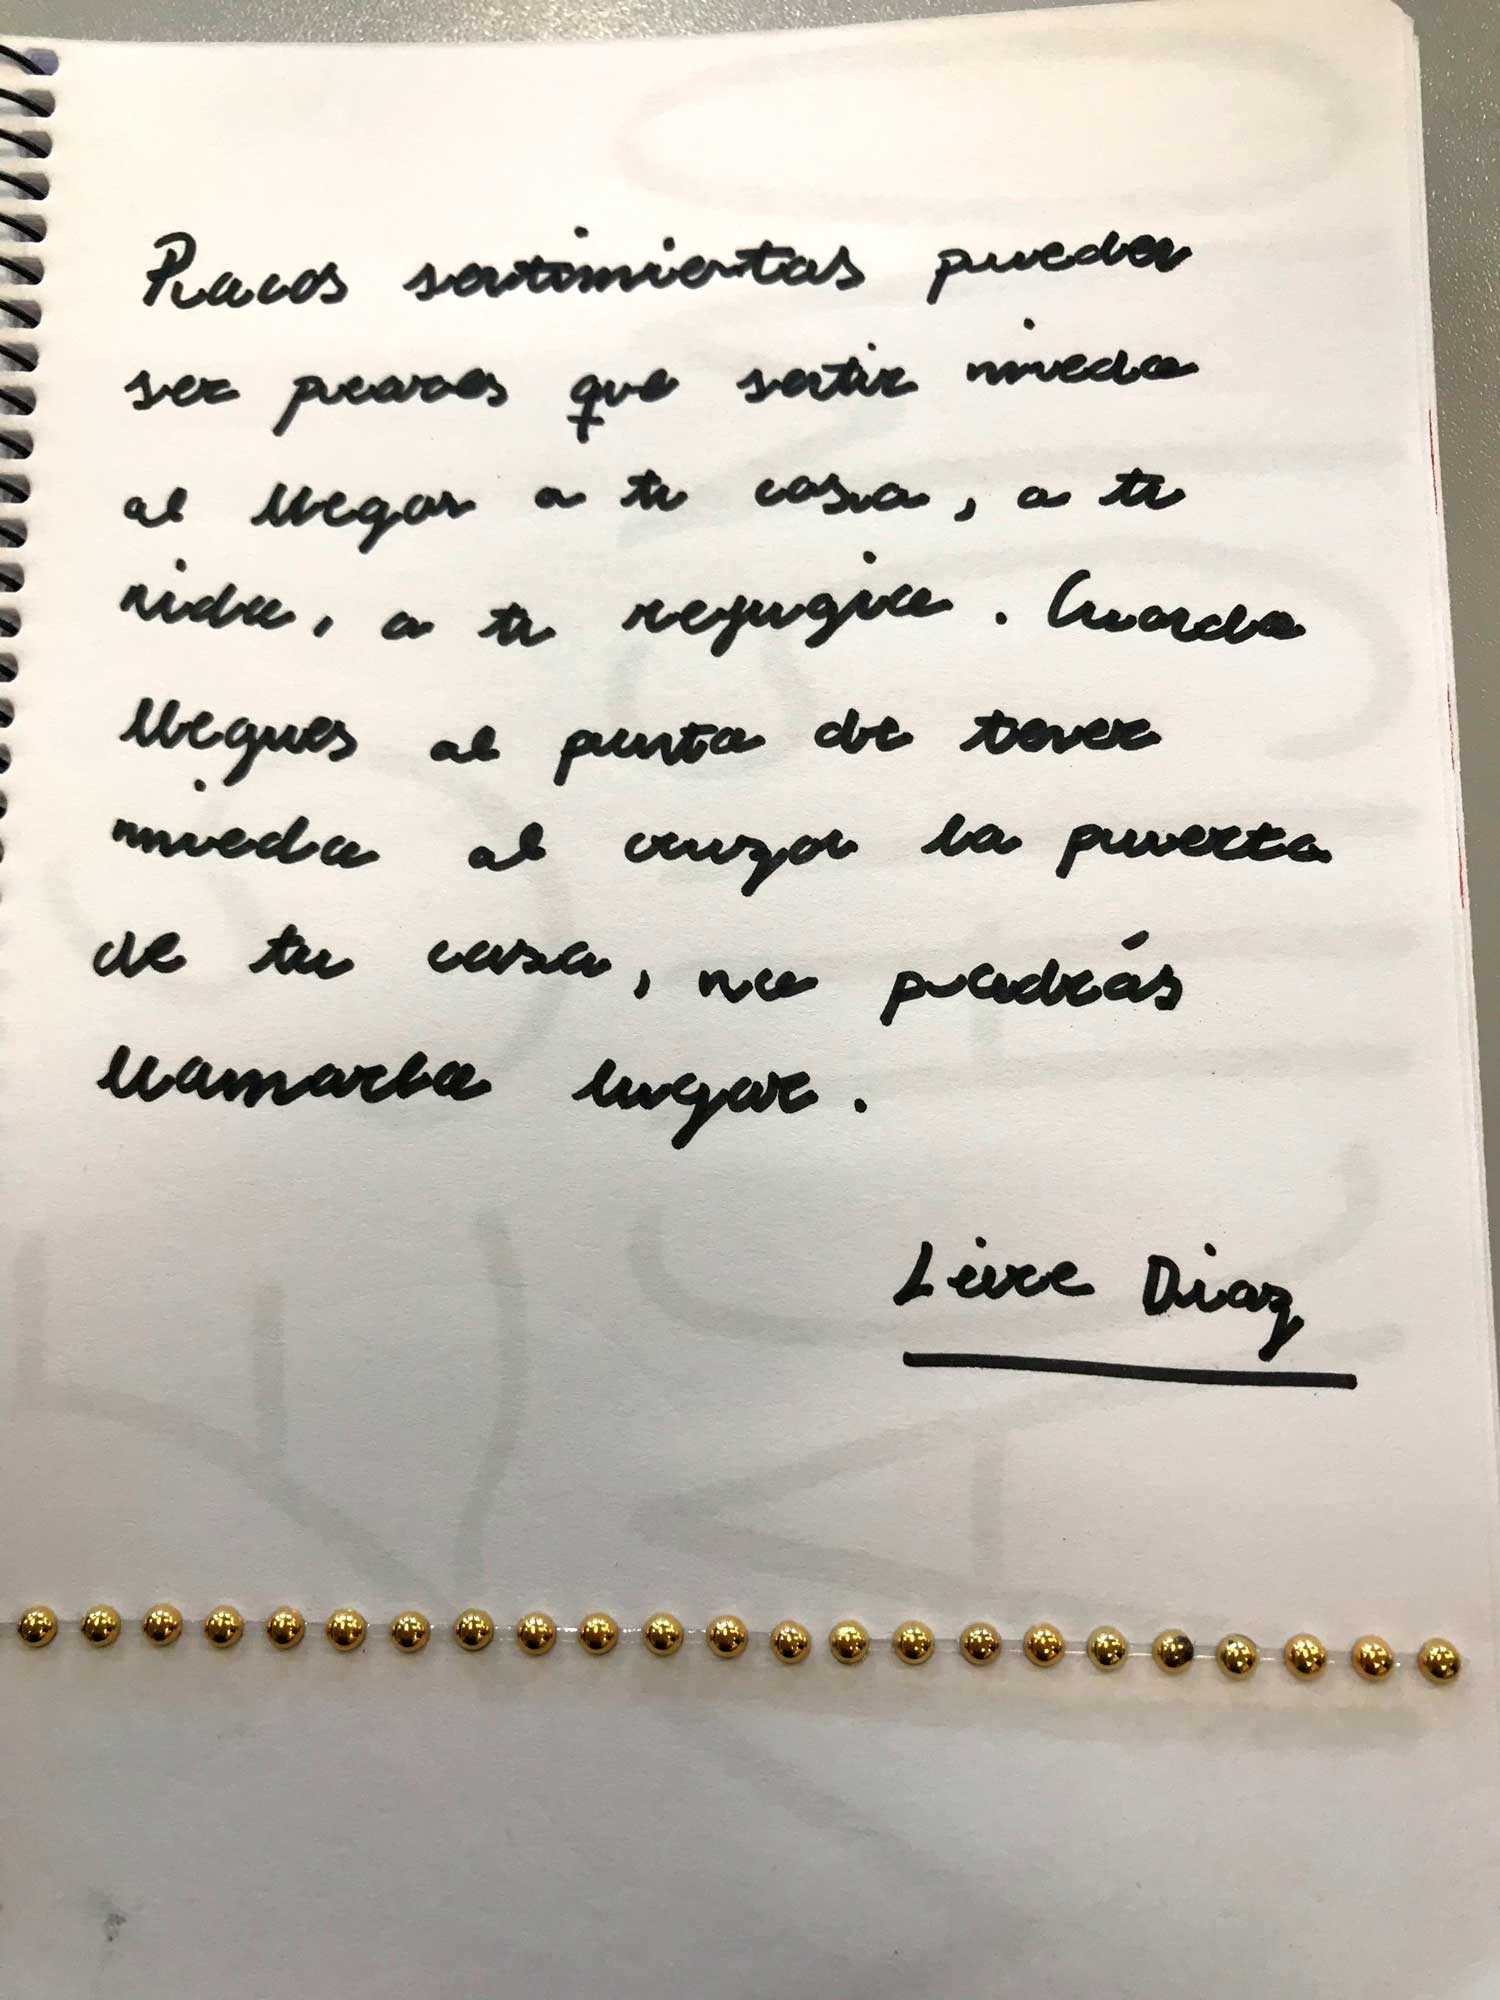 Pocos sentimientos pueden
ser peores que sentir miedo
al llegar a tu casa, a tu
nido, a tu refugio. Cuando
llegues al punto de tener
miedo al cruzar la puerta
de tu casa, no podrás
llamarlo lugar.
Leire Diaz